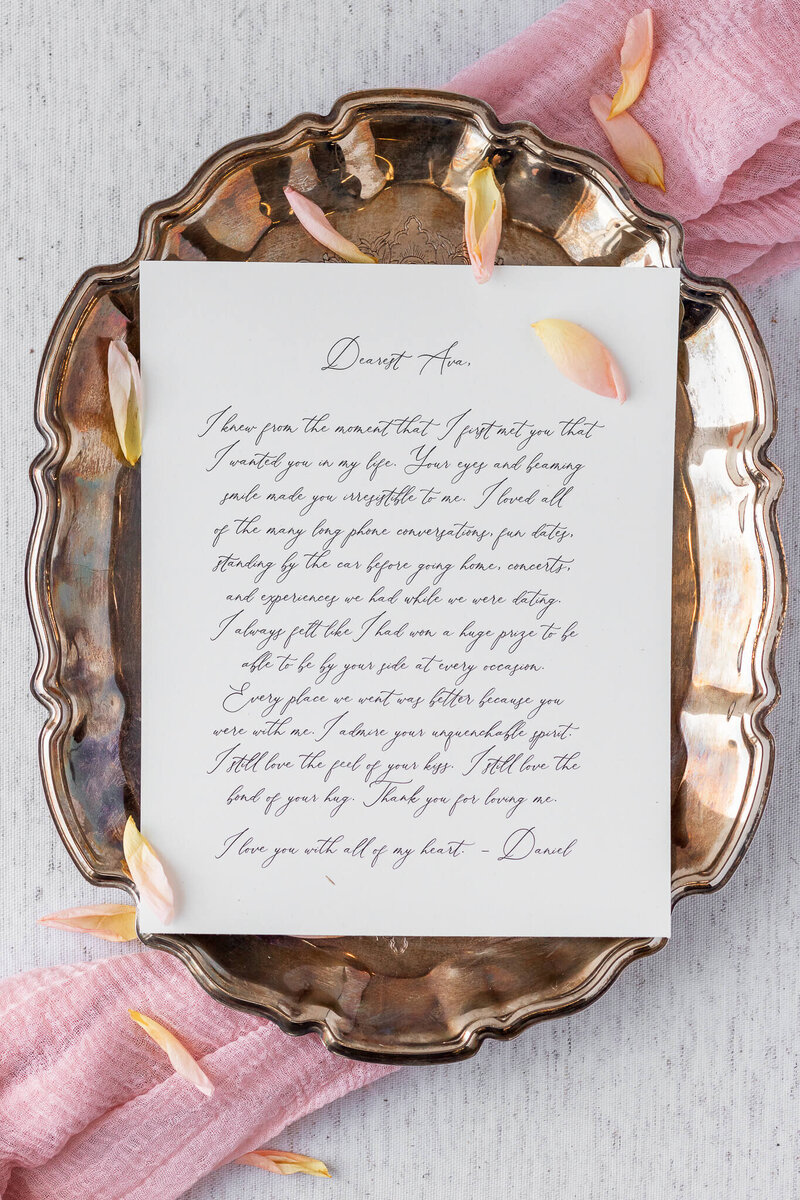 Dearest Ava,
I knew from the moment that I first met you that
I wanted you in my life. Your eyes and beaming
smile made you irresistible to me. I loved all
of the many long phone conversations, fun dates,
standing by the car before going home, concerts,
and experiences we had while we were dating.
I always felt like I had won a huge prize to be
able to be by your side at every occasion.
Every place we went was better because you
were with me. I admire your unquenchable spirit.
I still love the feel of your kiss. I still love the
bond of your hug. Thank you for loving me.
I love you with all of my heart. - Daniel